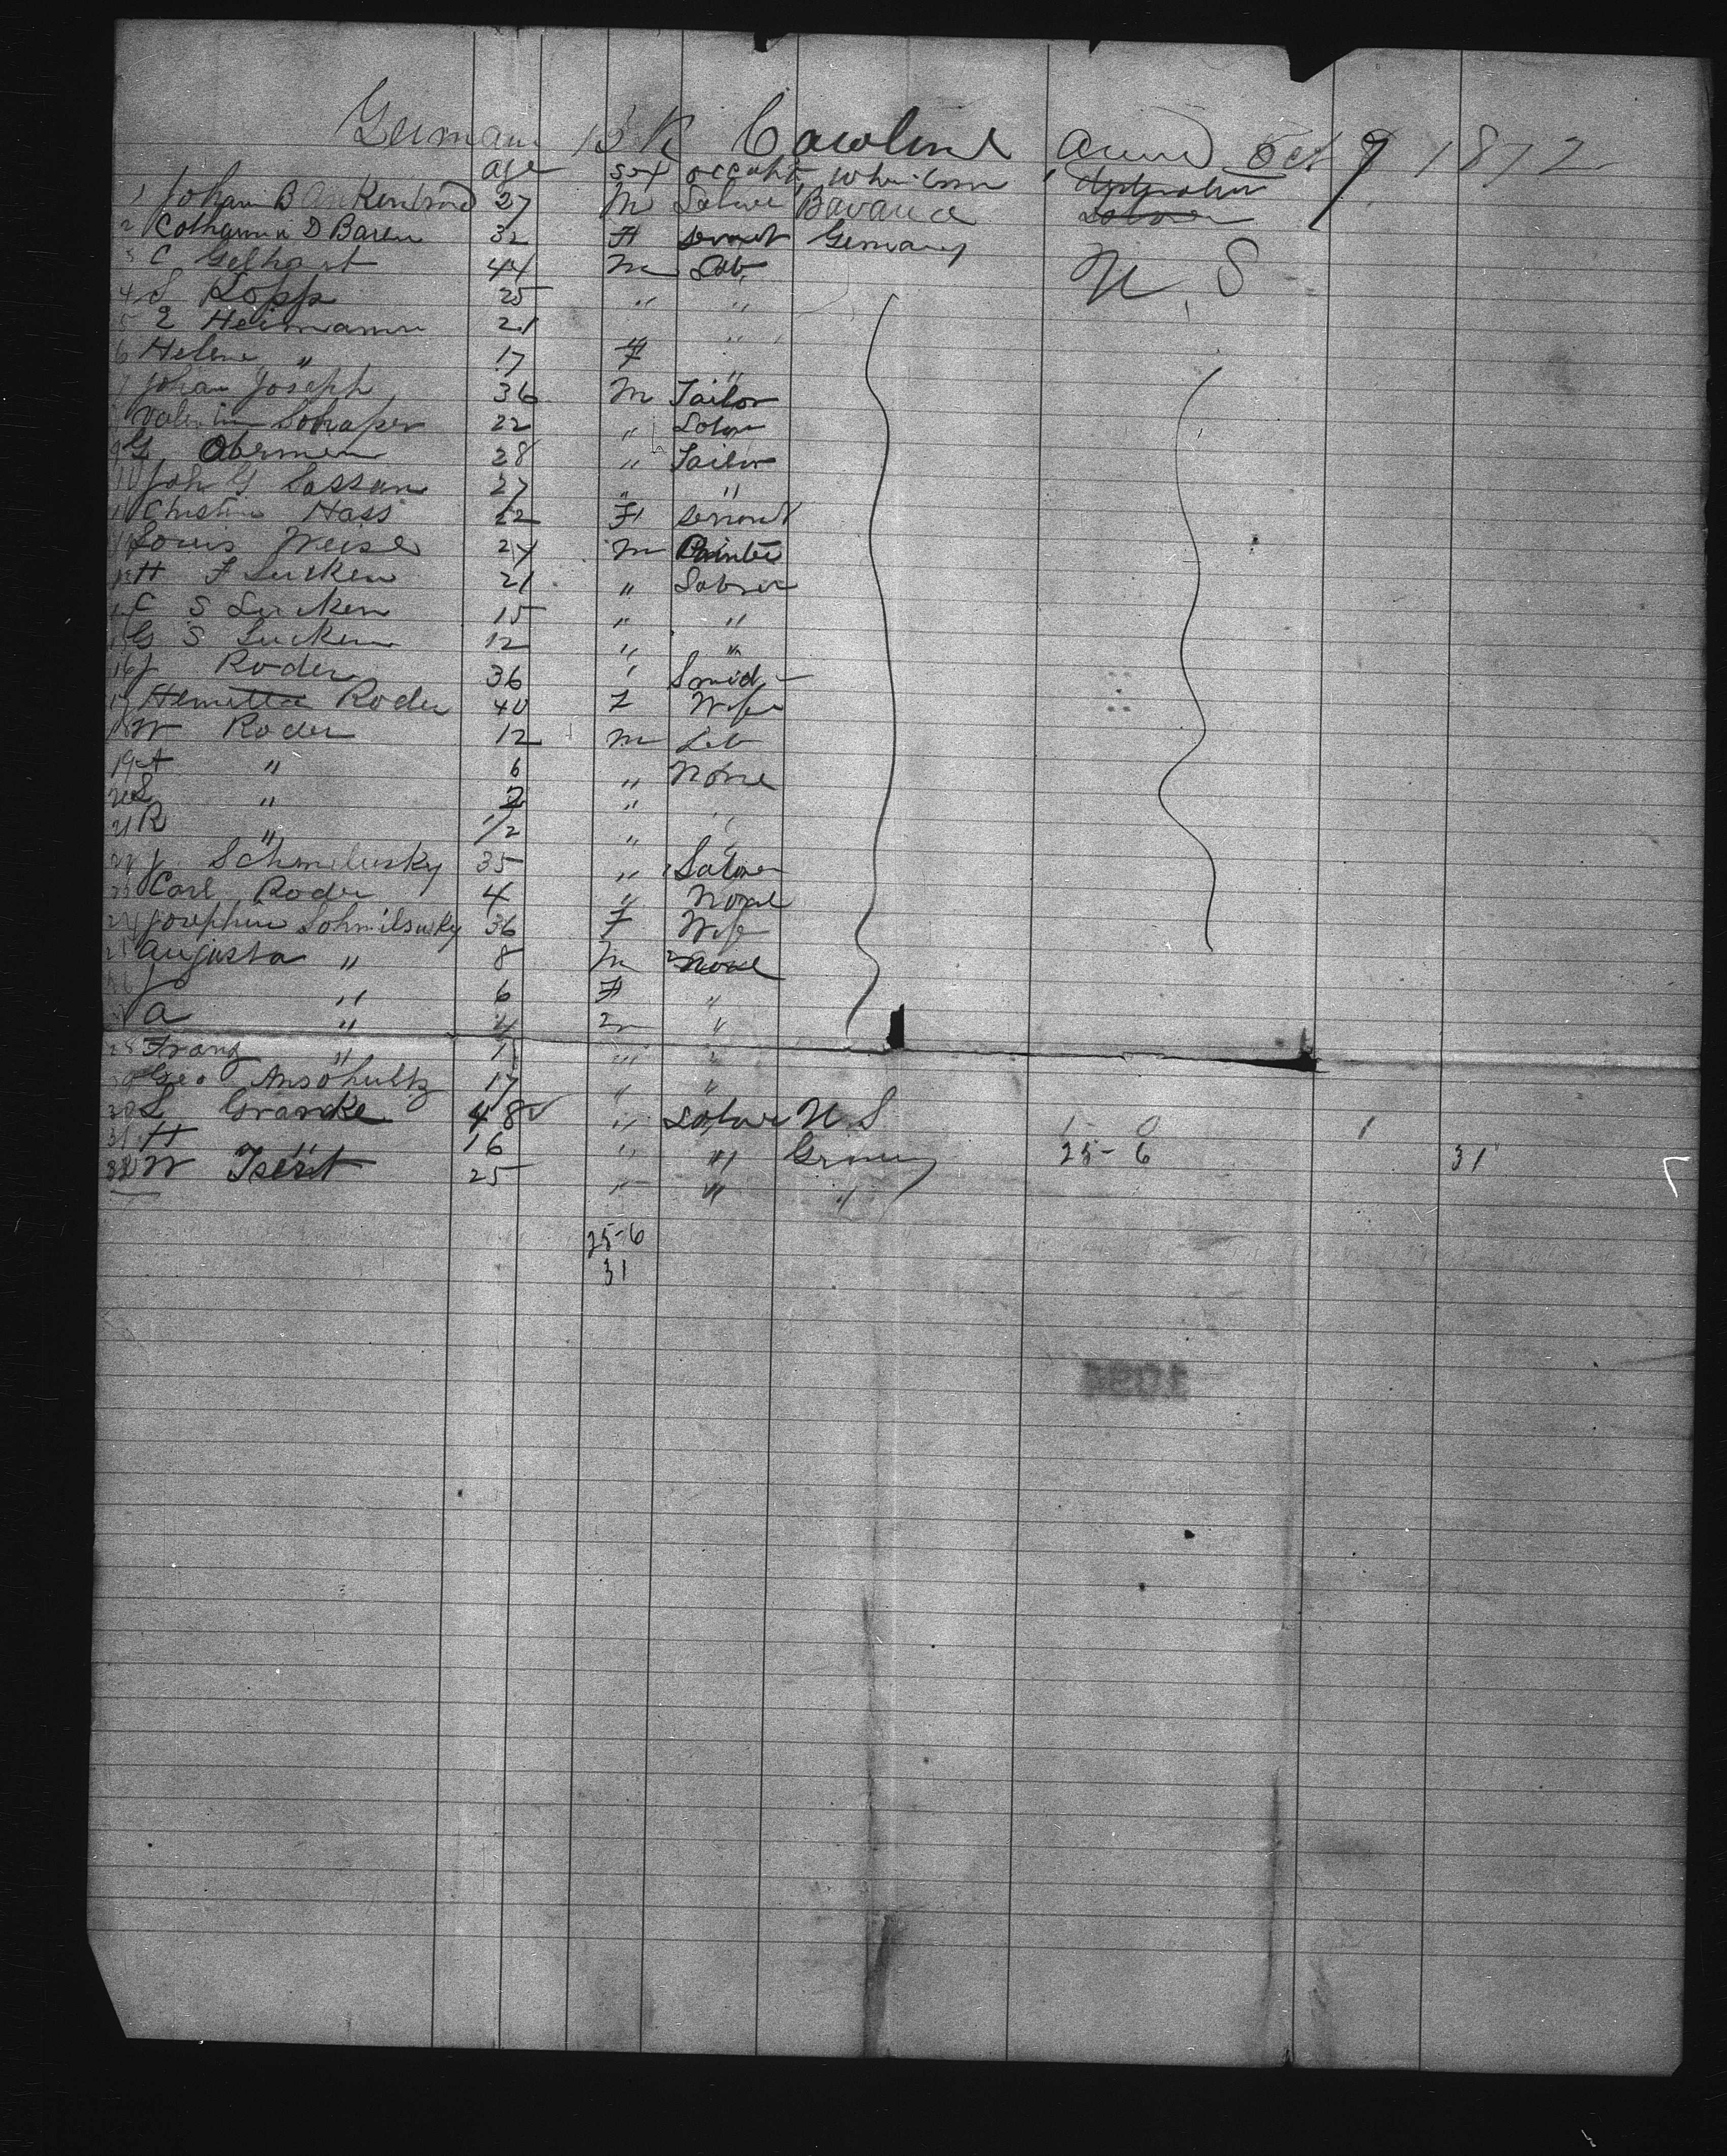 German BK Caroline arrived Oct 9 1872
age sex occupt, where born destination
1 Johann Bankenbrod 27 M Labore Bavaria
2 Catharina D Baren 32 F servant Germany
3 C Gefhart 44 m Lab. U. S
4 S Kopp 25 " "
5 E Heimann 21 " "
6 Helene " 17 F "
7 Johan Joseph 36 M Tailor
8 Valentin Schaper 22 " Labor
9 G Abermen 28 " Tailor
10 Joh G Sassan 27 " "
11 Christine Hass 22 F servant
12 Louis Weise 24 M Painter
13 H F Lucken 21 " Laborer
14 C S Lucken 15 " "
15 G S Lucken 12 " "
16 J Roder 36 " Smid
17 Henrietta Roder 40 F Wife
18 W Roder 12 m Lab
19 A " 6 " None
20 L " 2 " "
21 R " 1/2 " "
22 J. Schmilusky 35 " Labore
23 Carl Roder 4 " None
24 Josephine Schmilsusky 36 F Wife
25 Augusta " 8 M None
26 J " 6 F "
27 A " 4 m "
28 Franz " 1 " "
29 Geo Anschultz 17 " "
30 L Grancke 48 " Labore U S 1 - 0 1
31 H " 16 " " Grmny 25 - 6 31
32 W Isert 25 " " "
25-6
31